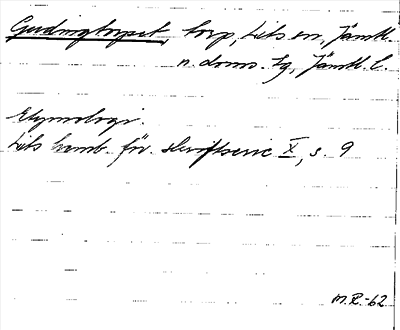 Gudingtorpet, torp, Lits sn, Jämtl.
n. doms. tg, Jämtl. l.
Etymologi.
Lits hemb. för. skriftserie X, s. 9
M.R.-62